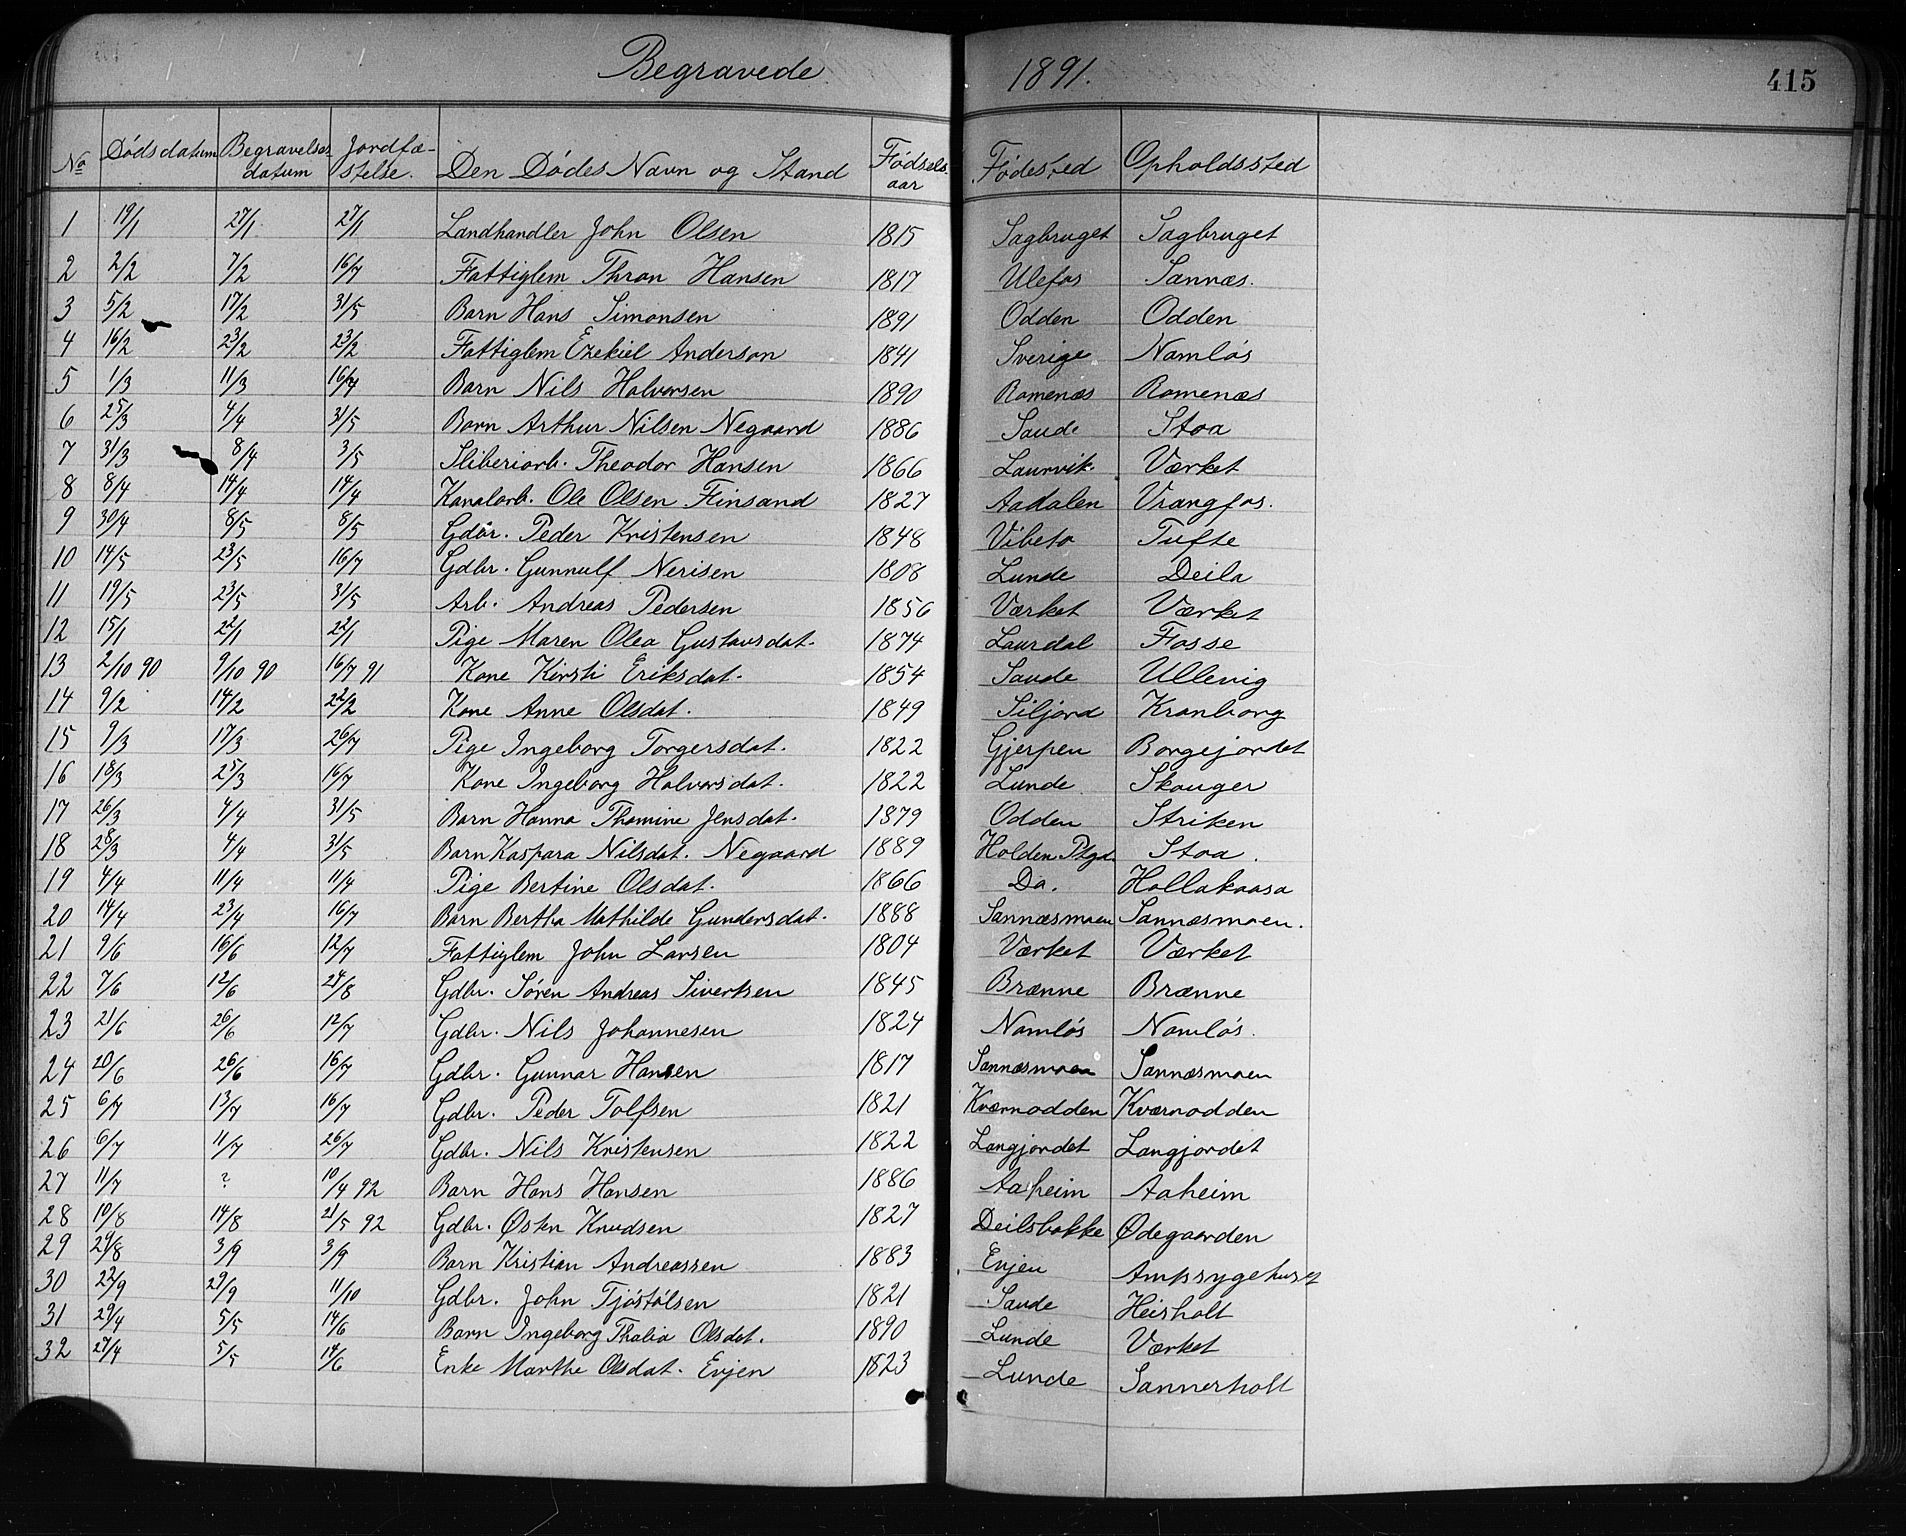 Begravede 1891. 415
No Dødsdatum Begravelsesdatum Jordfæstelse. Den Dødes Navn og Stand Fødselsaar Fødested Opholdssted
1 19/1 27/1 27/1 Landhandler John Olsen 1815 Sagbruget Sagbruget
2 2/2 7/2 16/7 Fattiglem Thron Hansen 1817 Ulefos Sannæs.
3 5/2 17/2 31/5 Barn Hans Simonsen 1891 Odden Odden
4 16/2 23/2 23/2 Fattiglem Ezekiel Anderson 1841 Sverige Namløs
5 1/3 11/3 16/7 Barn Nils Halvorsen 1890 Romenæs Romenæs
6 25/3 4/4 31/5 Barn Arthur Nilsen Negaard 1886 Saude Stoa
7 31/3 8/4 3/5 Sliberiarb. Theodor Hansen 1866 Laurvik. Værket
8 8/4 14/4 14/4 Kanalarb. Ole Olsen Finsand 1827 Aadalen Vrangfos.
9 30/4 8/5 8/5 Gdbr. Peder Kristensen 1848 Vibeto Tufte
10 14/5 23/5 16/7 Gdbr. Gunnulf Nerisen 1808 Lunde Deila
11 19/5 23/5 31/5 Arb. Andreas Pedersen 1856 Værket Værket
12 15/1 22/1 22/1 Pige Maren Olea Gustavsdat. 1874 Laurdal Fosse
13 2/10 90 9/10 90 16/7 91 Kone Kirsti Eriksdat. 1854 Saude Ullevig
14 9/2 14/2 22/2 Kone Anne Olsdat. 1849 Siljord Kranborg
15 9/3 17/3 26/7 Pige Ingeborg Torgersdat. 1822 Gjerpen Borgejordet
16 18/3 25/3 16/7 Kone Ingeborg Halvorsdat. 1822 Lunde Skouger
17 26/3 4/4 31/5 Barn Hanna Thomine Jensdat. 1879 Odden Striken
18 28/3 4/4 31/5 Barn Kaspara Nilsdat. Negaard 1889 Holden Ptgd. Stoa.
19 4/4 11/4 11/4 Pige Bertine Olsdat. 1866 Do. Hollakaasa
20 14/4 23/4 16/7 Barn Bertha Mathilde Gundersdat. 1888 Sannæsmoen Sannæsmoen.
21 9/6 16/6 12/7 Fattiglem John Larsen 1804 Værket Værket
22 7/6 12/6 24/8 Gdbr. Søren Andreas Sivertsen 1845 Brænne Brænne
23 21/6 26/6 12/7 Gdbr. Nils Johannesen 1824 Namløs Namløs.
24 20/6 26/6 16/7 Gdbr. Gunnar Hansen 1817 Sannæsmoen Sannæsmoen
25 6/7 13/7 16/7 Gdbr. Peder Tolfsen 1821 Kværnodden Kværnodden
26 6/7 11/7 26/7 Gdbr. Nils Kristensen 1822 Langjordet Langjordet
27 11/7 ? 10/4 92 Barn Hans Hansen 1886 Aaheim Aaheim
28 10/8 14/8 21/5 92 Gdbr. Østen Knudsen 1827 Deilsbakke Ødegaarden
29 29/8 3/9 3/9 Barn Kristian Andreassen 1883 Evjen Amtssygehuset
30 22/9 29/9 11/10 Gdbr. John Tjøstølsen 1821 Saude Heisholt
31 29/4 5/5 14/6 Barn Ingeborg Thalia Olsdat. 1890 Lunde Værket
32 27/4 5/5 14/6 Enke Marthe Olsdat. Evjen 1823 Lunde Sannerholt